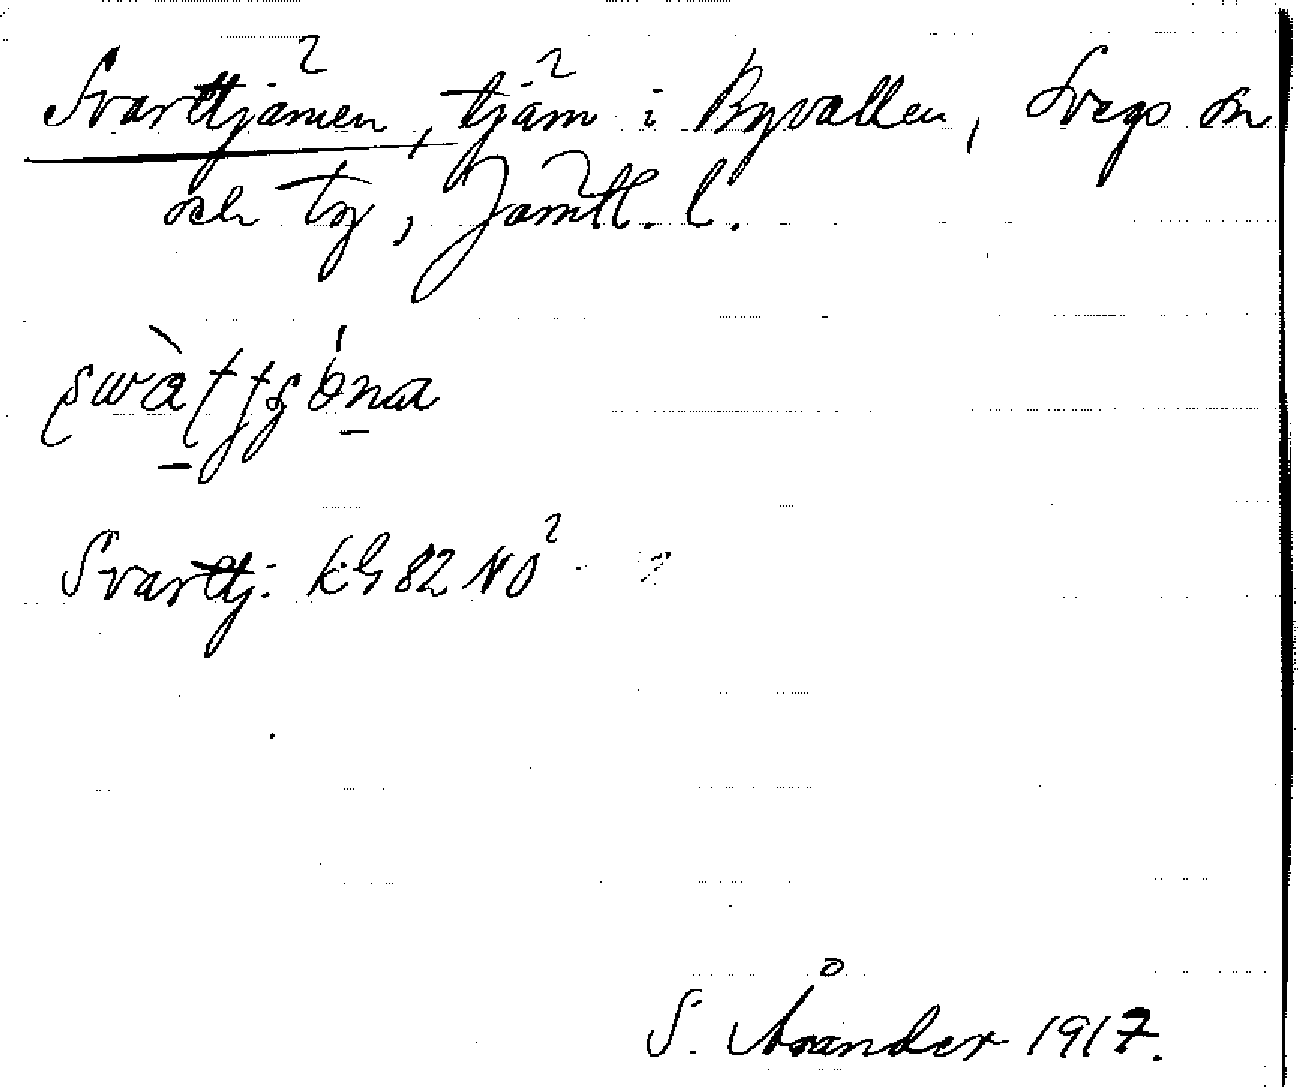 Svarttjärnen, tjärn i Byvallen, Svegs sn
och tg, Jämtl. l.
Svarttj: kG 82 NO²
S. Ånander 1917.